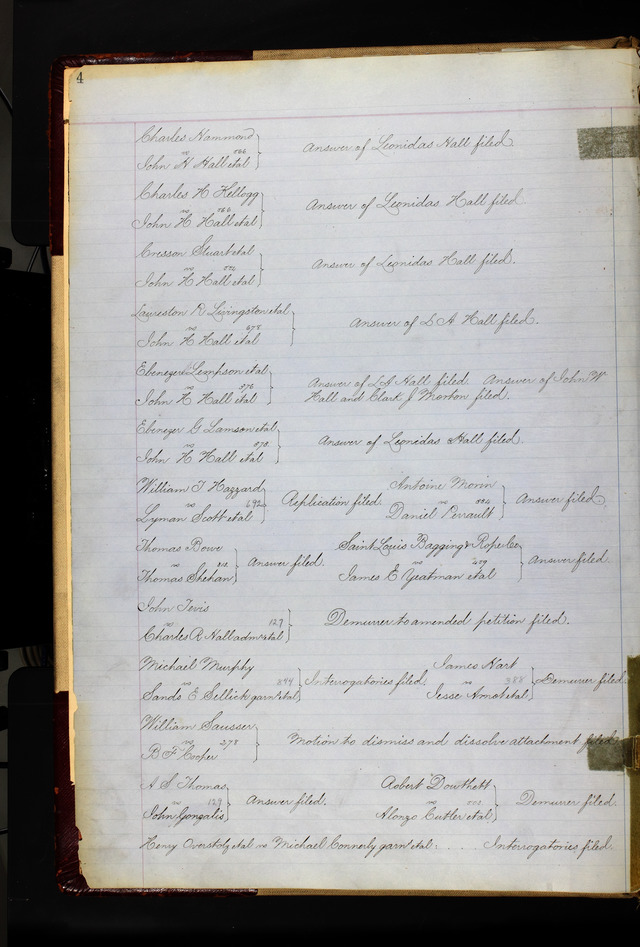 4
Charles Hammond
vs 566
John H Hall etal
Answer of Leonidas Hall filed.
Charles H Kellogg
vs 766
John H Hall etal
Answer of Leonidas Hall filed
Cresson Stuart etal
vs
John H Hall etal
Answer of Leonidas Hall filed.
Laureston R Livingston etal
vs 678
John H Hall etal
Answer of L A Hall filed.
Ebenezer etal
vs 576
John H Hall etal
Answer of L A Hall filed. Answer of John W
Hall and Clark J Morton filed.
Ebenezer G Lamson etal
vs
John H Hall etal
Answer of Leonidas Hall filed.
William T Hazzard
vs 692
Lyman Scott etal
Replication filed.
Antoine Morin
vs
Daniel Perrault
Answer filed.
Thomas Bowe
vs
Thomas Shehan
Answer filed.
Saint Louis Bagging & Rope Co
vs
James E Yeatman etal
Answer filed.
John Tevis
vs 127
Charles R Hall admr etal
Demurrer to amended petition filed.
Michael Murphy
vs 844
Sands E Sellick garn etal
Interrogatories filed.
James Hart
vs 388
Jesse Arnot etal
Demurrer filed.
William Sausser
vs 278
B F Cooper
Motion to dismiss and dissolve attachment filed.
A S Thomas
vs 129
John Gonzalis
Answer filed.
Robert Douthett
vs
Alonzo Cutler etal
Demurrer filed.
Henry Overstolz etal vs Michael Connerly garn etal. . . . . Interrogatories filed.